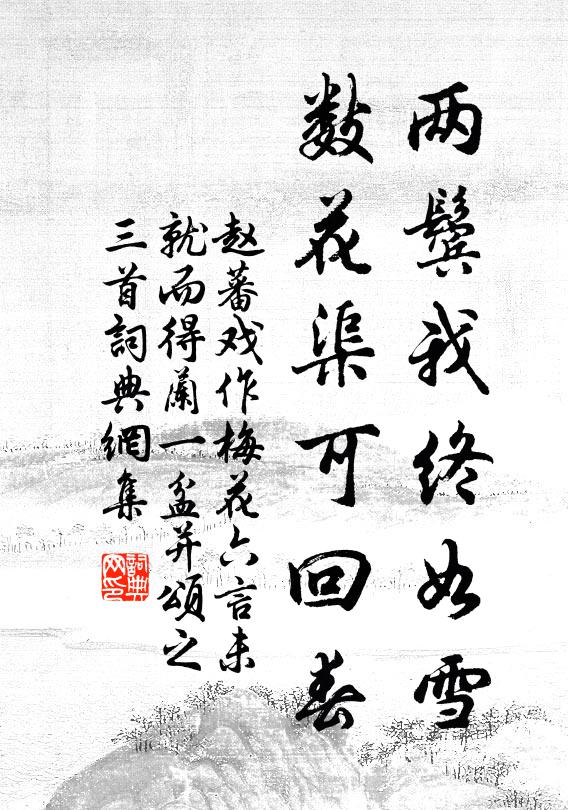 两鬓我终如雪
数花渠可回春
赵蕃戏作梅花六言未
就而得蘭一盆并頌之
三首詞典網集
詞典网印